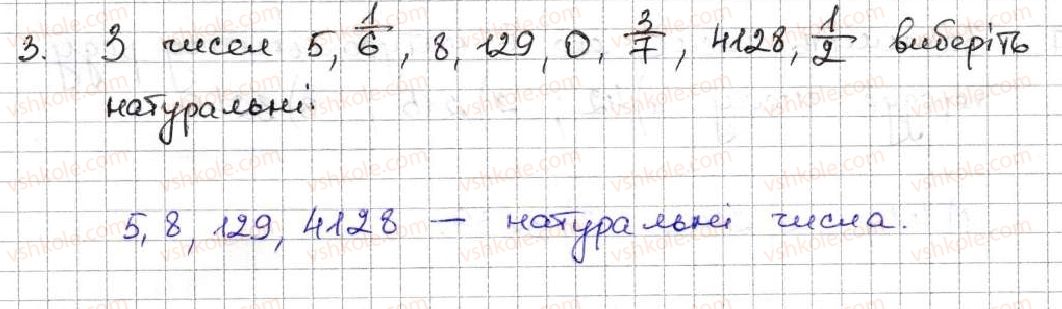 3. З чисел 5, 1/6, 8, 129, 0, 3/7, 4128, 1/2 виберіть
натуральні.
5, 8, 129, 4128 — натуральні числа.